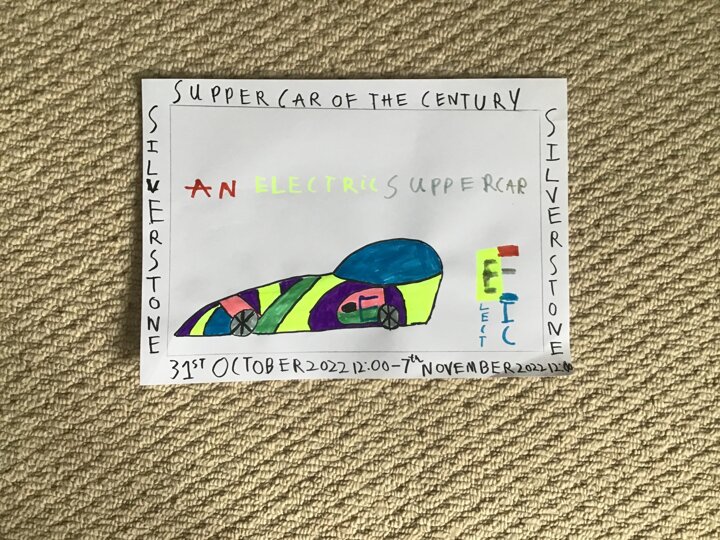 SUPPER CAR OF THE CENTURY
SILVERSTONE
AN ELECTRIC SUPPERCAR
SILVERSTONE
E
LECT
IC
31ST OCTOBER 2022 12:00-7th NOVEMBER 2022 12:00